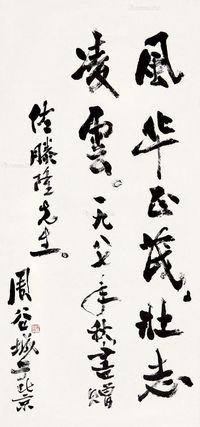 風华正茂壮志
凌雲。一九八七年秋書贈
佐藤隆先生。
周谷城于北京